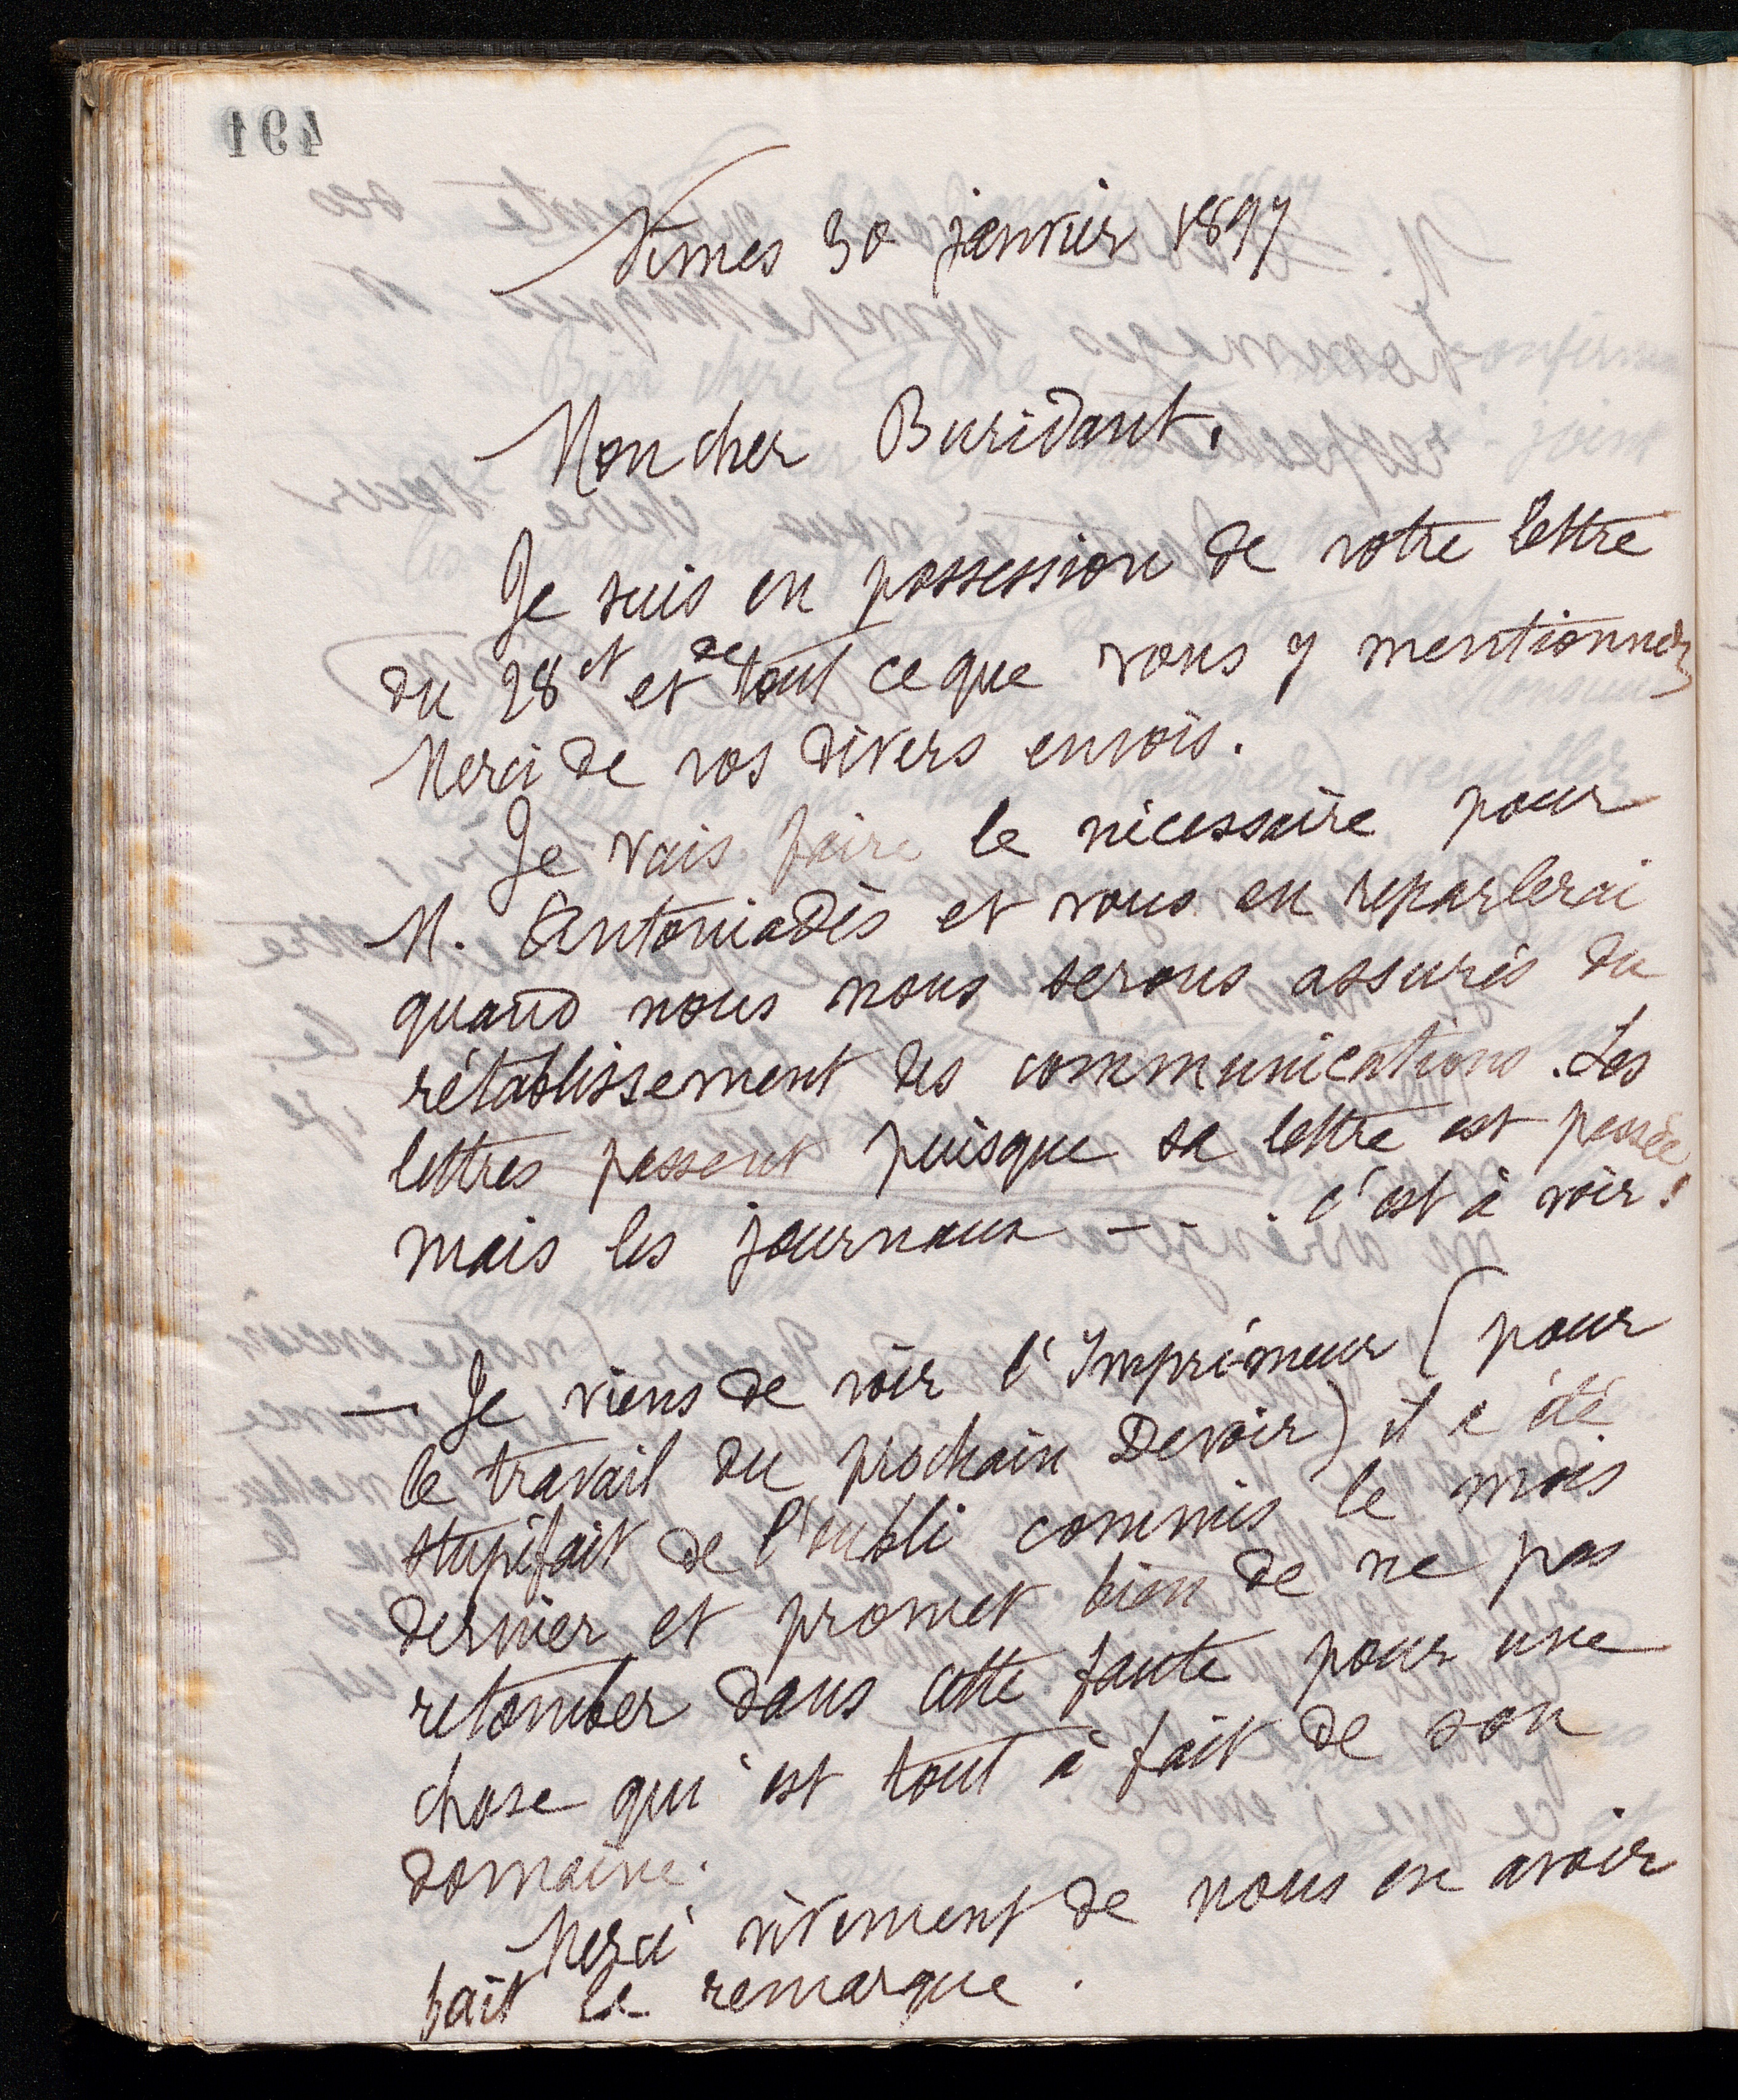 164
Nimes 30 janvier 1897
Mon cher Buridant.
Je suis en possession de votre lettre
du 28 ct et de tout ce que vous y mentionnez
Merci de vos divers envois.
Je vais faire le nécessaire pour
M. Antoniadès et vous en reparlerai
quand nous nous serons assurés du
rétablissement des communications. Les
lettres passent puisque sa lettre est passée
mais les journaux — . . c'est à voir!
— Je viens de voir l'Imprimeur (pour
le travail du prochain Devoir) il a été
stupéfait de l'oubli commis le mois
dernier et promet bien de ne pas
retomber dans cette faute pour une
chose qui est tout à fait de son
domaine.
Merci vivement de nous en avoir
fait la remarque.